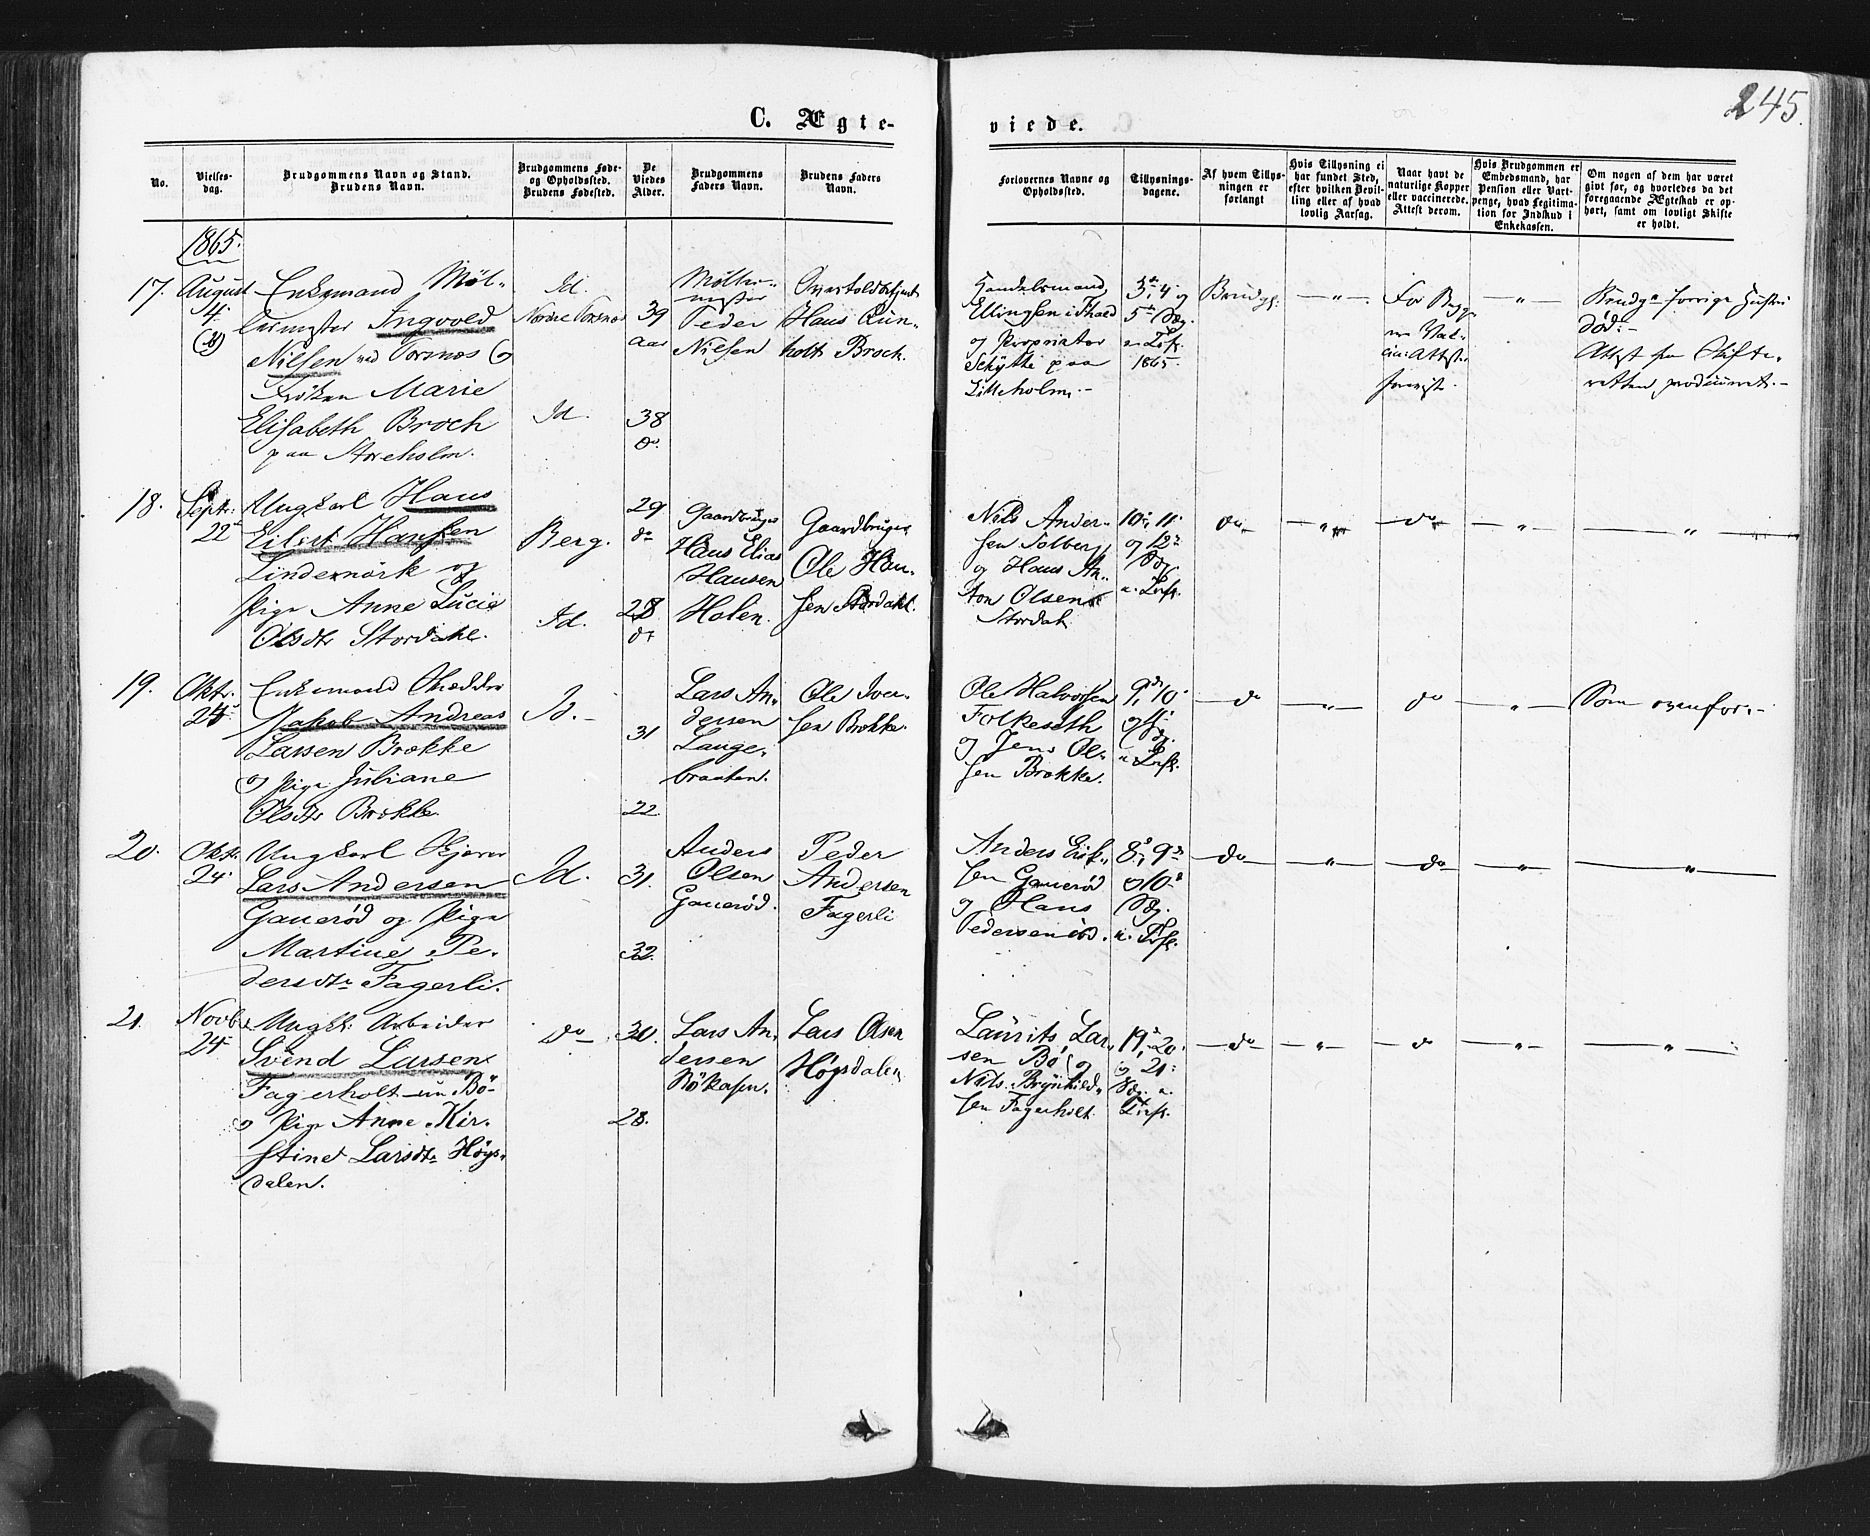 245.
C. Ægte-
viede.
No.
Vielses-
dag.
Brudgommens Navn og Stand.
Brudens Navn.
Brudgommens Føde-
og Opholdssted.
Brudens Fødested.
De
Viedes
Alder.
Brudgommens
Faders Navn.
Brudens Faders
Navn.
Forlovernes Navne og
Opholdssted.
Tillysnings-
dagene.
Af hvem Tillys-
ningen er
forlangt
Hvis Tillysning ei
har fundet Sted,
efter hvilken Bevil-
ling eller af hvad
lovlig Aarsag.
Naar havt de
naturlige Kopper
eller vaccinerede.
Attest derom.
Hvis Brudgommen er
Embedsmand, har
Pension eller Vart-
penge, hvad Legitima-
tion for Indskud i
Enkekassen.
Om nogen af dem har været
givt før, og hvorledes da det
foregaaende Ægteskab er op-
hørt, samt om lovligt Skifte
er holdt.
1865.
17.
August
4.
Enkemand Møl-
lermester Ingvold
Nilsen ved Torsnæs og
Frøken Marie
Elisabeth Broch
paa Storeholm.
Id.
Nordre Torsnæs
Id.
39
aar
38
do.
Møller-
mester
Peder
Nilsen
Overtoldbetjent
Hans Lün-
holt Broch.
Handelsmand
Ellingsen i Fhald
og Proprietør
Schytte paa
Lilleholm.-
3die, 4. og
5te Søg.
e. Trf.
1865.
Brudg.
— „ —
For Begge
Vac-
cin: Attester
foreviist.
— „ —
Brudgs forrige Hustru
død:-
Attest fra Skifte-
retten produceret.-
18.
Septr.
22
Ungkarl Hans
Eilert Hansen
Lindernörk og
Pige Anne Lucie
Olsdtr Stordahl.
Berg.
Id.
29
do
28
do
Gaardbruger
Hans Elias
Hansen
Holen.
Gaardbruger
Ole Han-
sen Stordahl.
Nils Ander-
sen Solberg
og Hans An-
ton Olsen
Stordahl
10de, 11.
og 12te
Søg.
e. Trf.
do
— „ —
do
— „ —
— „ —
19.
Oktr.
24
Enkemand Skrædder
Jakob Andreas
Larsen Brække
og Pige Juliane
Olsdtr Brække.
Id.-
31
22.
Lars An-
dersen
Lange-
braaten.
Ole Iver-
sen Brække.
Ole Halvorsen
Folkeseth
og Jens Ol-
sen Brække.
9de, 10.
og 11.
Søg.
e. Trf.
do
— „ —
do
— „ —
Som ovenfor.-
20.
Oktr.
24.
Ungkarl Kjører
Lars Andersen
Gauerød og Pige
Martine Pe-
dersdtr Fagerli.
Id.
31.
32.
Anders
Olsen
Gauerød.
Peder
Andersen
Fagerli
Anders Erik-
sen Gauerød
og Hans
Pedersen ibd.
8de, 9de
og 10de
Søg.
e. Trf.
do
— „ —
do
— „ —
— „ —
21.
Novbr.
24
Ungk. Arbeider
Svend Larsen
Fagerholt - nu Bö -
og Pige Anne Kir-
stine Larsdtr Högs-
dalen.
do
30.
28.
Lars An-
dersen
Lars Olsen
Högsdalen
Laurits Lar-
sen Bö og
Nils Brynhild-
sen Fagerholt.
19de, 20.
og 21.
Søg.
e. Trf.
do
— „ —
do
— „ —
„